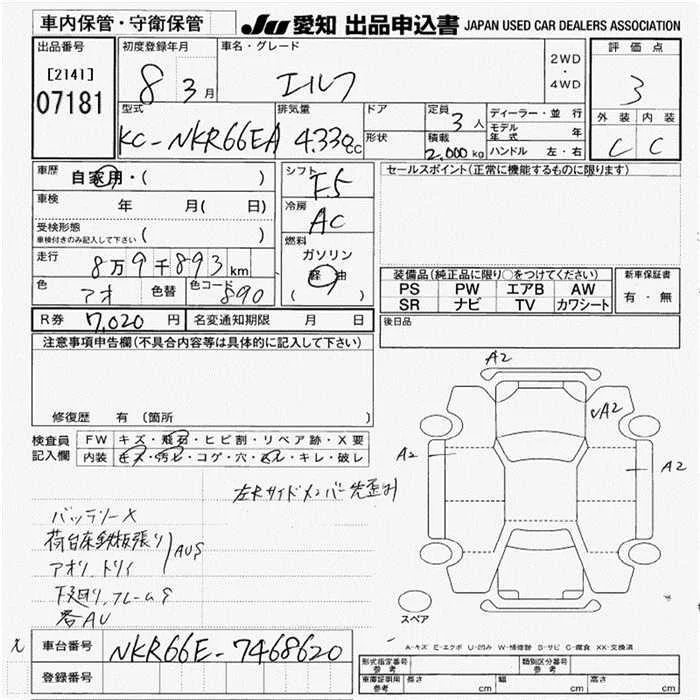 車内保管・守衛保管
JU 愛知 出品申込書 JAPAN USED CAR DEALERS ASSOCIATION
出品番号
[2141]
07181
初度登録年月
8 3月
車名・グレード
エルフ
2WD
・
4WD
評価点
3
外装 内装
C C
型式
KC-NKR66EA
排気量
4.330cc
ドア
形状
定員
3人
積載
2,000kg
ディーラー・並行
モデル年式 年
ハンドル 左・右
車歴
自家用・( )
車検
年 月( 日)
受検形態
車検付きのみ記入して下さい ( )
走行
8万9千893km
色
アオ
色替
色コード
890
シフト
F5
冷房
AC
燃料
ガソリン
軽油
( )
セールスポイント(正常に機能するものに限ります)
装備品(純正品に限り○をつけてください)
PS PW エアB AW
SR ナビ TV カワシート
新車保証書
有・無
後日品
R券 7,020円 名変通知期限 月 日
注意事項申告欄(不具合内容等は具体的に記入して下さい)
修復歴 有(箇所 )
検査員
記入欄
FW キズ・飛石・ヒビ割・リペア跡・X要
内装 キズ・汚レ・コゲ・穴・ビル・キレ・破レ
左Rサイドメンバー先歪み
バッテリーX
荷台床鉄板張り
アオリ、トリイ
AUS
下廻り、フレームS
各AU
A2
A2
A2
A2
スペア
A-キズ E-エクボ U-凹み W-補修跡 S-サビ C-腐食 XX-交換済
車台番号 NKR66E-7468620
登録番号
形式指定番号 参考
類別区分番号 参考
車庫証明用 参考 長さ cm 幅 cm 高さ cm